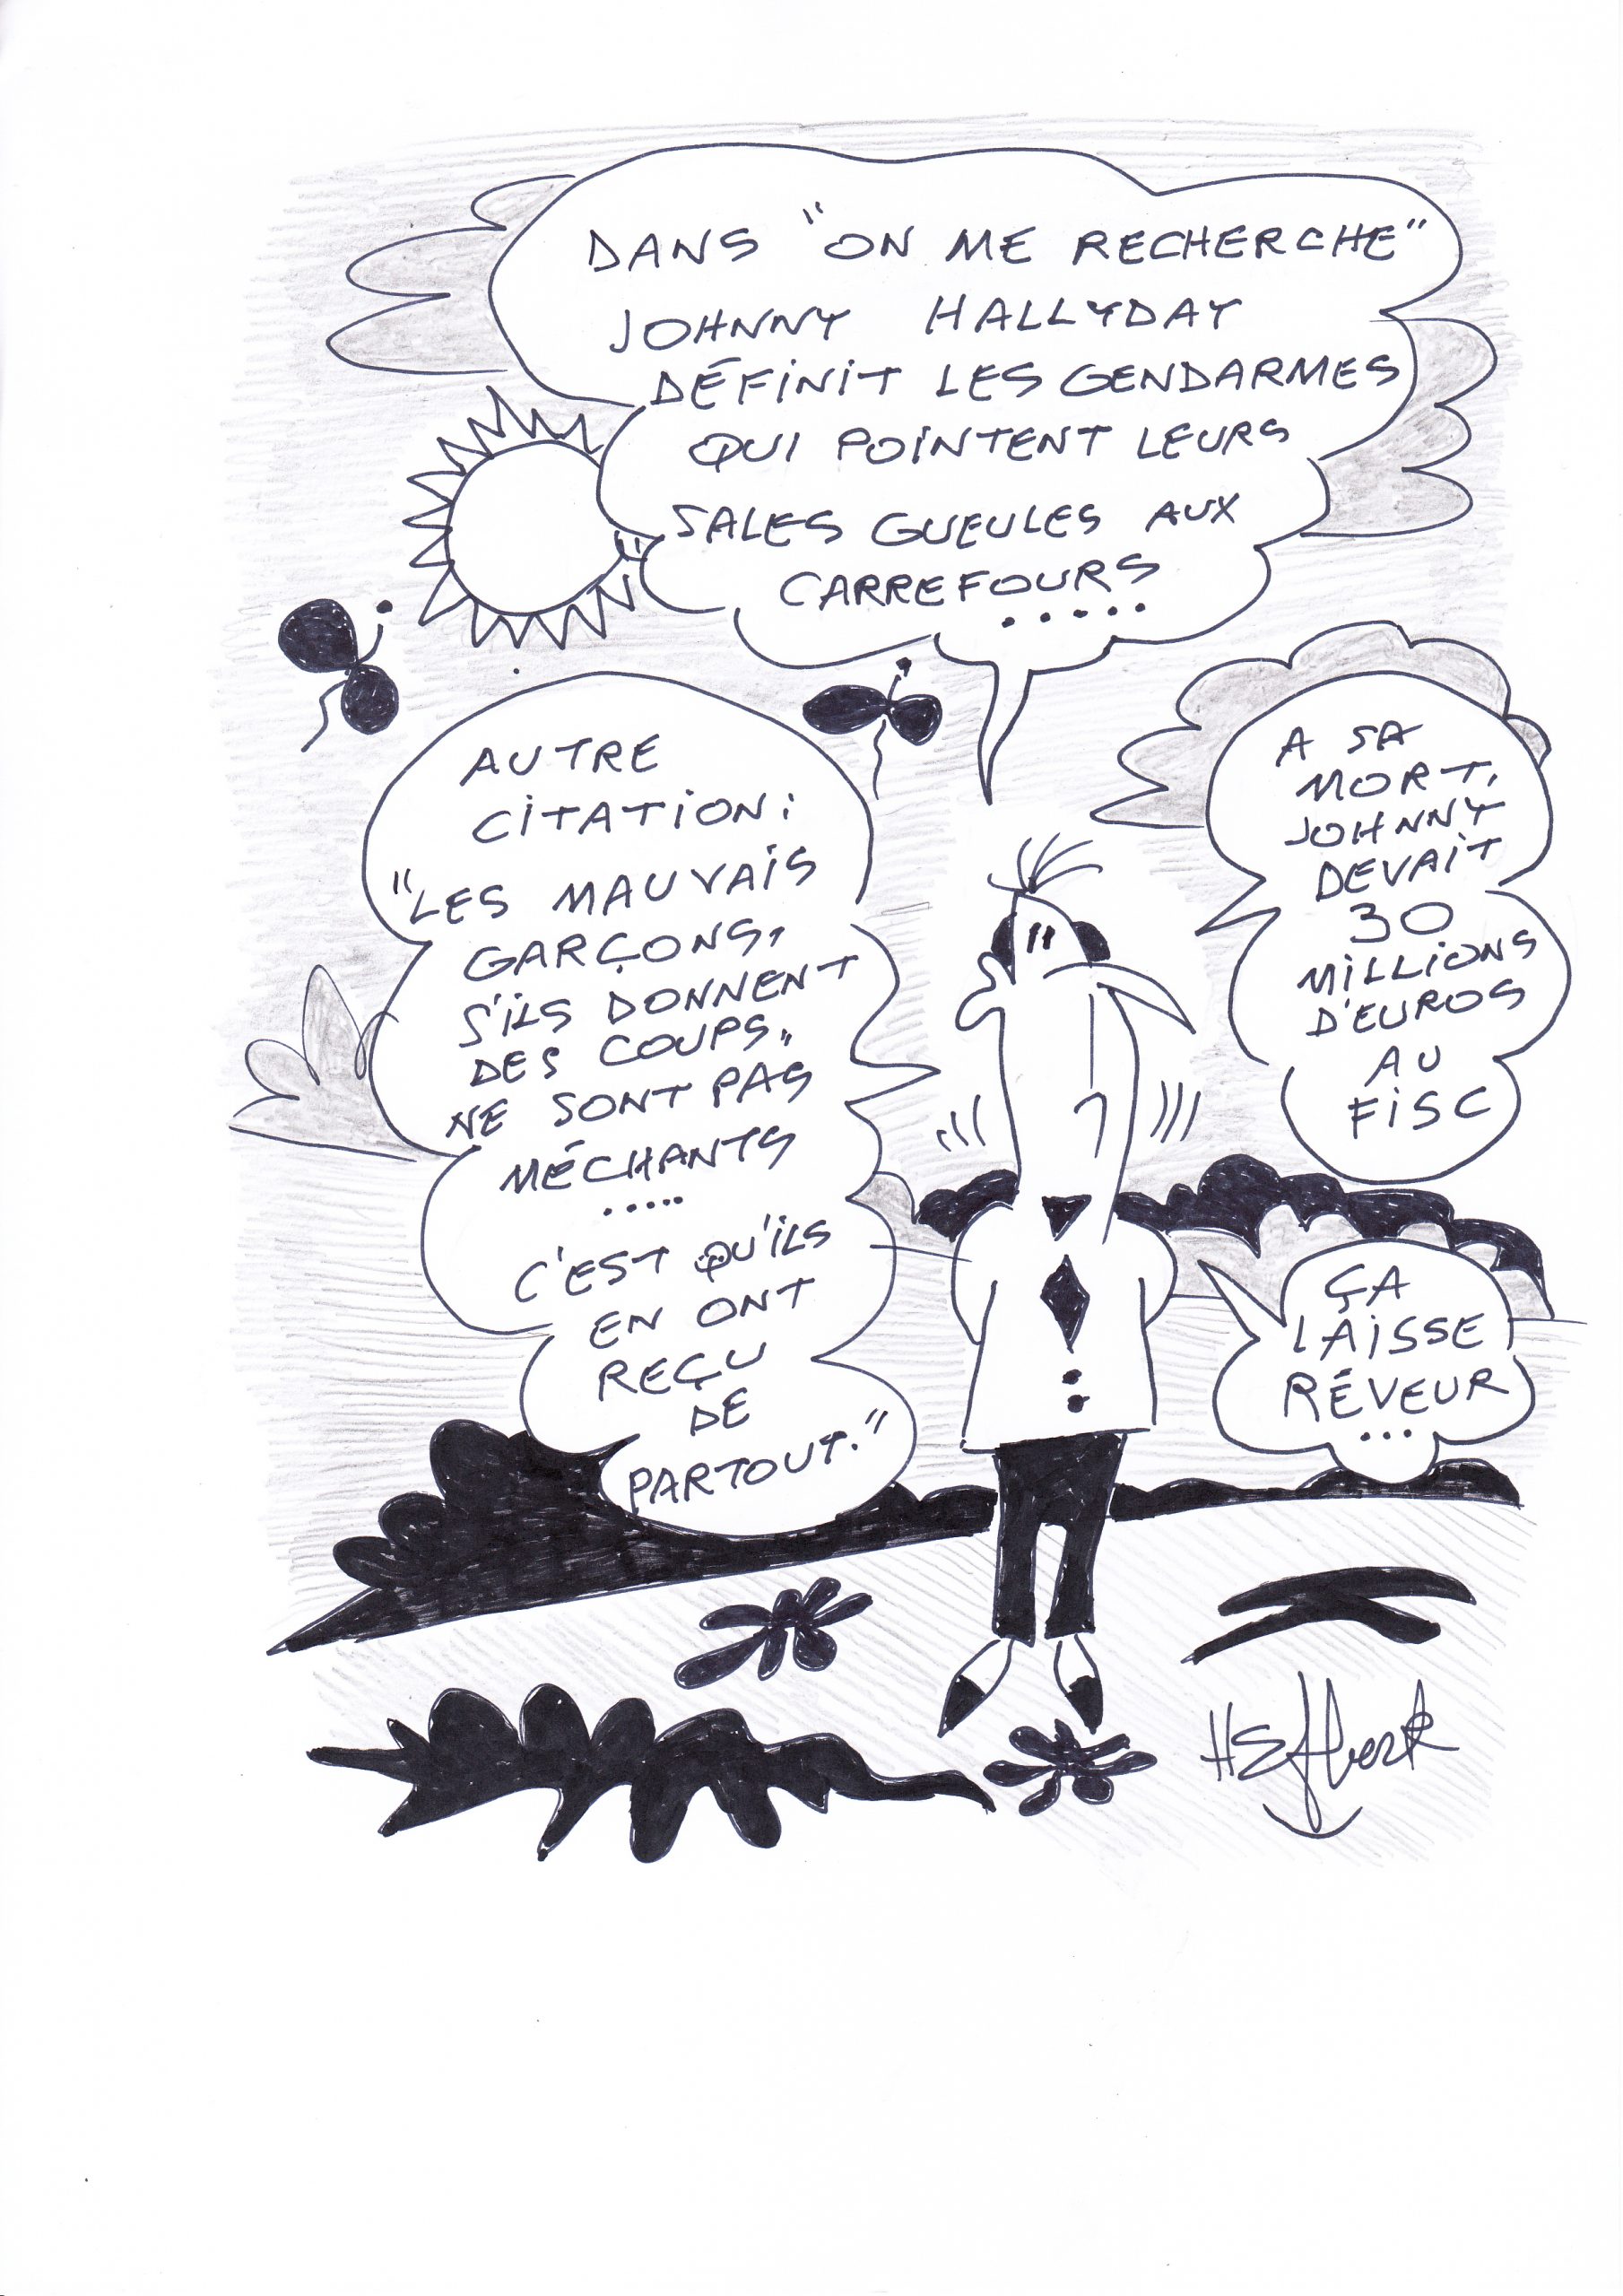 DANS "ON ME RECHERCHE"
JOHNNY HALLYDAY
DÉFINIT LES GENDARMES
QUI POINTENT LEURS
"SALES GUEULES AUX
CARREFOURS
.....
AUTRE
CITATION:
"LES MAUVAIS
GARÇONS,
S'ILS DONNENT
DES COUPS,
NE SONT PAS
MÉCHANTS
.....
C'EST QU'ILS
EN ONT
REÇU
DE
PARTOUT."
A SA
MORT,
JOHNNY
DEVAIT
30
MILLIONS
D'EUROS
AU
FISC
ÇA
LAISSE
RÉVEUR
...